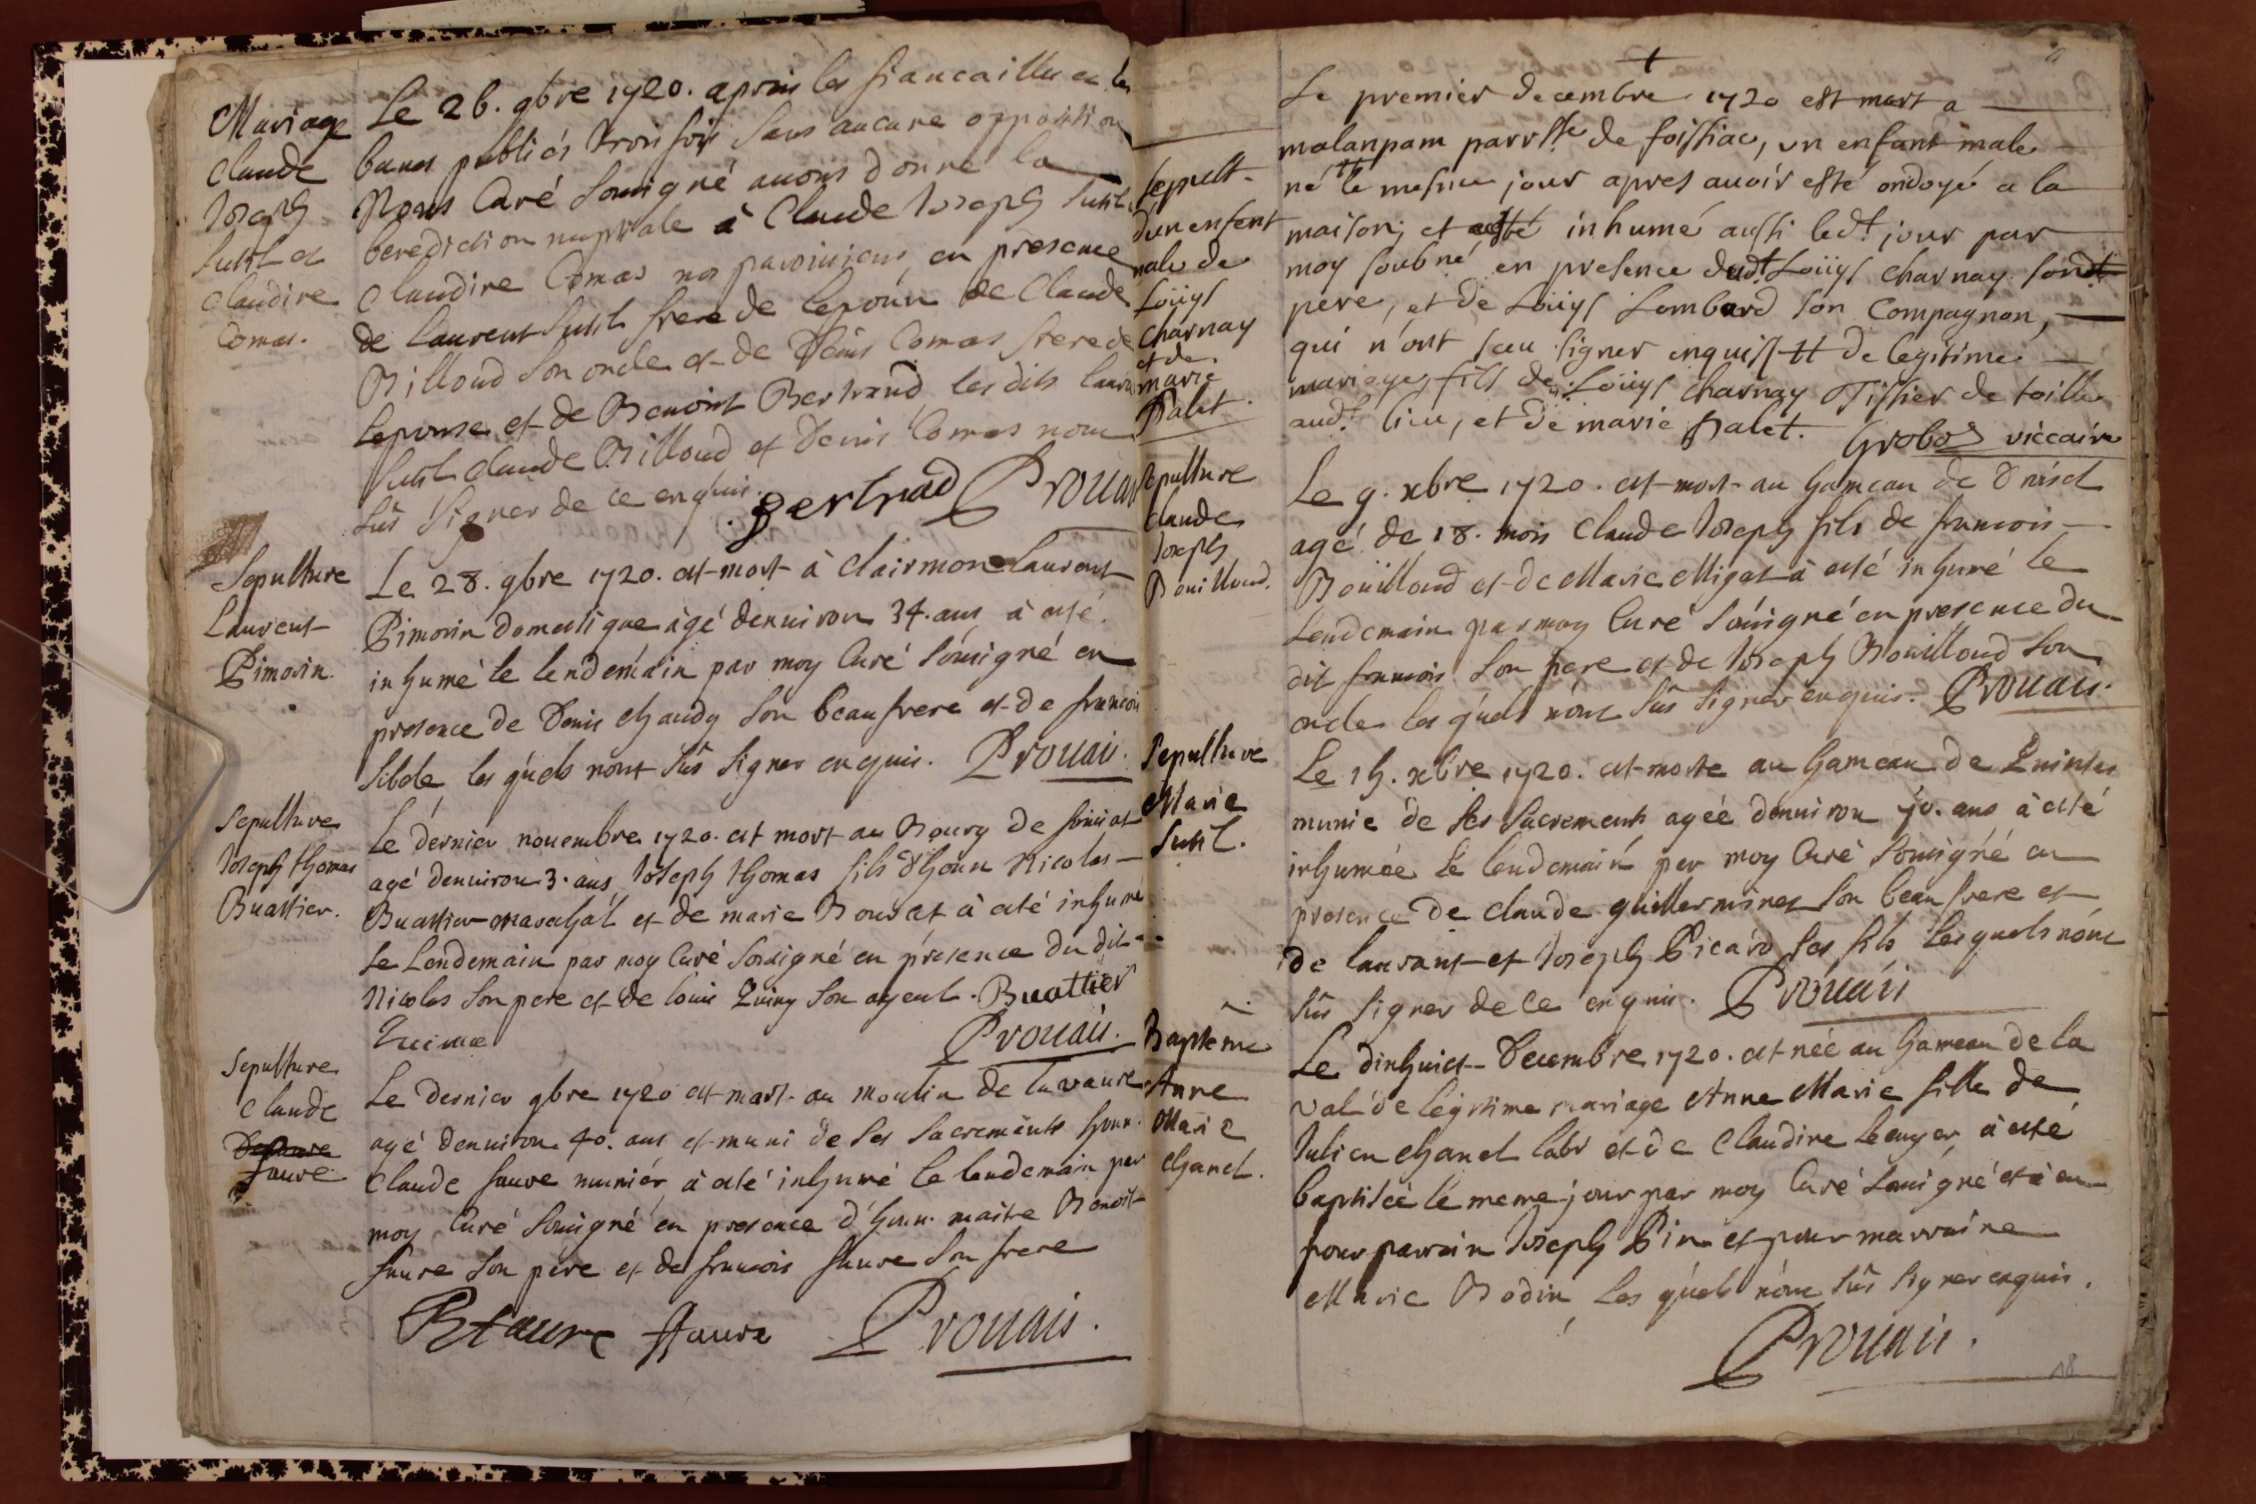 Mariage
Claude
Joseph
Sutil et
Claudine
Comas.
Le 26. 9bre 1720. apres les fiancailles et les
bancs publiés trois fois sans aucune opposition
Nous Curé Sousigné avons donné la
benediction nuptiale à Claude Joseph Sutil
Claudine Comas nos paroissiens en presence
de Laurent Sutil frere de lepoux de Claude
Billoud son oncle et de Denis Comas frere de
lepouse et de Benoist Bertrand les dits Laurent
Sutil Claude Billoud et Denis Comas nont
sûs signer de ce enquis. Bertrad Prouais
Sepulture
Laurent
Pimorin.
Le 28. 9bre 1720. est mort à Clairmon Laurent
Pimorin domestique âgé denuiron 34. ans à esté
inhumé le lendemain par moy Curé sousigné en
presence de Denis Chaudy son beaufrere et de francois
Sibole les quels nont sûs signer enquis. Prouais.
Sepulture
Joseph thomas
Buattier.
Le dernier nouembre 1720. est mort au Bourg de foissiat
agé denuiron 3. ans Joseph thomas fils d'honn Nicolas
Buattier marechal et de marie Bousat à esté inhumé
le Lendemain par moy Curé sousigné en présence du dit
Nicolas son pere et de louis Quiny son ayeul. Buattier
Prouais.
Sepulture
Claude
faure
Le dernier 9bre 1720 est mort au moulin de la vaure
agé denuiron 40. ans et muni de ses sacrements honn.
Claude faure munier à esté inhumé le lendemain par
moy Curé sousigné en presence d'honn. maitre Benoist
faure son pere et de francois faure son frere
B faure ffaure Prouais.
Sepult.
dun enfant
male de
Loüys
Charnay
et de
marie
Palet.
Le premier decembre 1720 est mort a
malanpam parrsse de foissiac, un enfant male
né le mesme jour apres auoir esté ondoyé a la
maison; et a esté inhumé aussi led.t jour par
moy soubné en presence dud.t Loüys Charnay sond.t
pere, et de Loüys Lombard son Compagnon,
qui n'ont sceu signer enquis tt de legitime
mariage, fils de Loüys Charnay Tissier de toille
aud.t lieu, et de marie Palet. Grobos viccaire
Sepulture
Claude
Joseph
Bouilloud.
Le 9. xbre 1720. est mort au hameau de
agé de 18. mois Claude Joseph fils de francois
Boüilloud et de Marie Migat à esté inhumé le
Lendemain par moy Curé sousigné en presence du
dit francois son pere et de Joseph Bouilloud son
oncle les quels nont sûs signer enquis. Prouais.
Sepulture
Marie
Sutil.
Le 15. xbre 1720. est morte au hameau de
munie de ses sacrements agée denuiron ans à esté
inhumée le lendemain par moy Curé sousigné en
presence de Claude guillerminet son beaufrere et
de laurant et Joseph Picard ses fils lesquels nont
sûs signer de ce enquis. Prouais
Bapteme
Anne
Marie
Chanel.
Le dixhuict Decembre 1720. est née au hameau de la
val de legitime mariage Anne Marie fille de
Julien Chanel labr et de Claudine à esté
baptisée le meme jour par moy Curé sousigné et à eu
pour parrain Joseph Pin et pour marraine
Marie Bodin, Les quels nont sûs signer enquis.
Prouais.
18